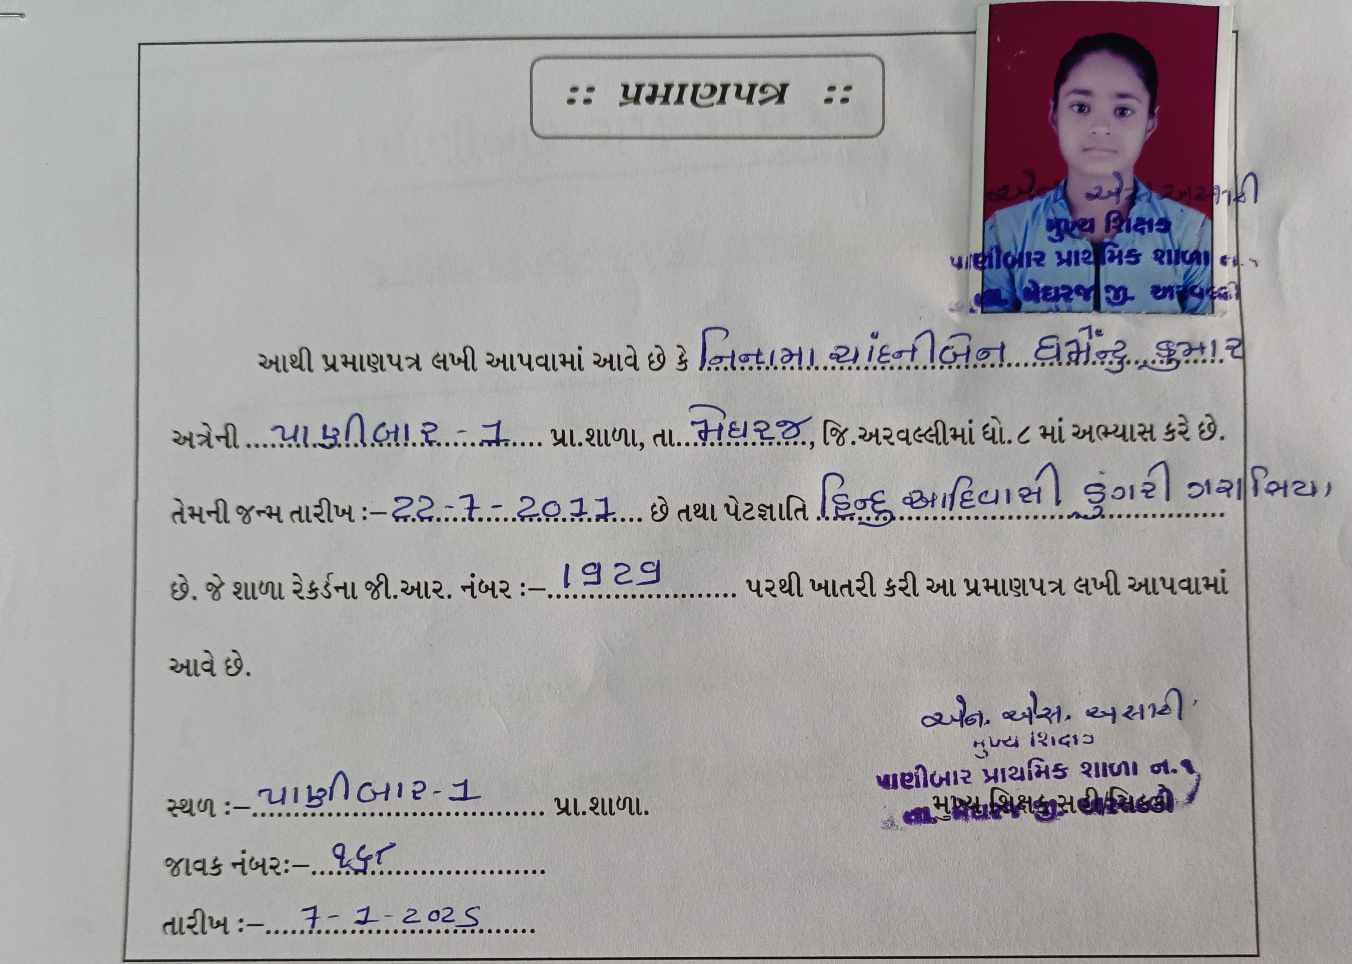 :: પ્રમાણપત્ર ::
મુખ્ય શિક્ષક
પાણીબાર પ્રાથમિક શાળા નં.૧
તા. મેઘરજ જી. અરવલ્લી
આથી પ્રમાણપત્ર લખી આપવામાં આવે છે કે નિનામા ચાંદનીબેન ધર્મેન્દ્રકુમાર
અત્રેની પાણીબાર - 1 પ્રા.શાળા, તા. મેઘરજ, જિ.અરવલ્લીમાં ધો.૮ માં અભ્યાસ કરે છે.
તેમની જન્મ તારીખ :– 22-7-2011 છે તથા પેટજ્ઞાતિ હિન્દુ આદિવાસી ડુંગરી ગરાસિયા
છે. જે શાળા રેકર્ડના જી.આર. નંબર :– 1929 પરથી ખાતરી કરી આ પ્રમાણપત્ર લખી આપવામાં
આવે છે.
એન. એસ. અસારી
મુખ્ય શિક્ષક
પાણીબાર પ્રાથમિક શાળા નં.૧
મુખ્ય શિક્ષક સહી/સિક્કો
તા. મેઘરજ જી. અરવલ્લી
સ્થળ :– પાણીબાર-1 પ્રા.શાળા.
જાવક નંબર:–
તારીખ :– 7-1-2025